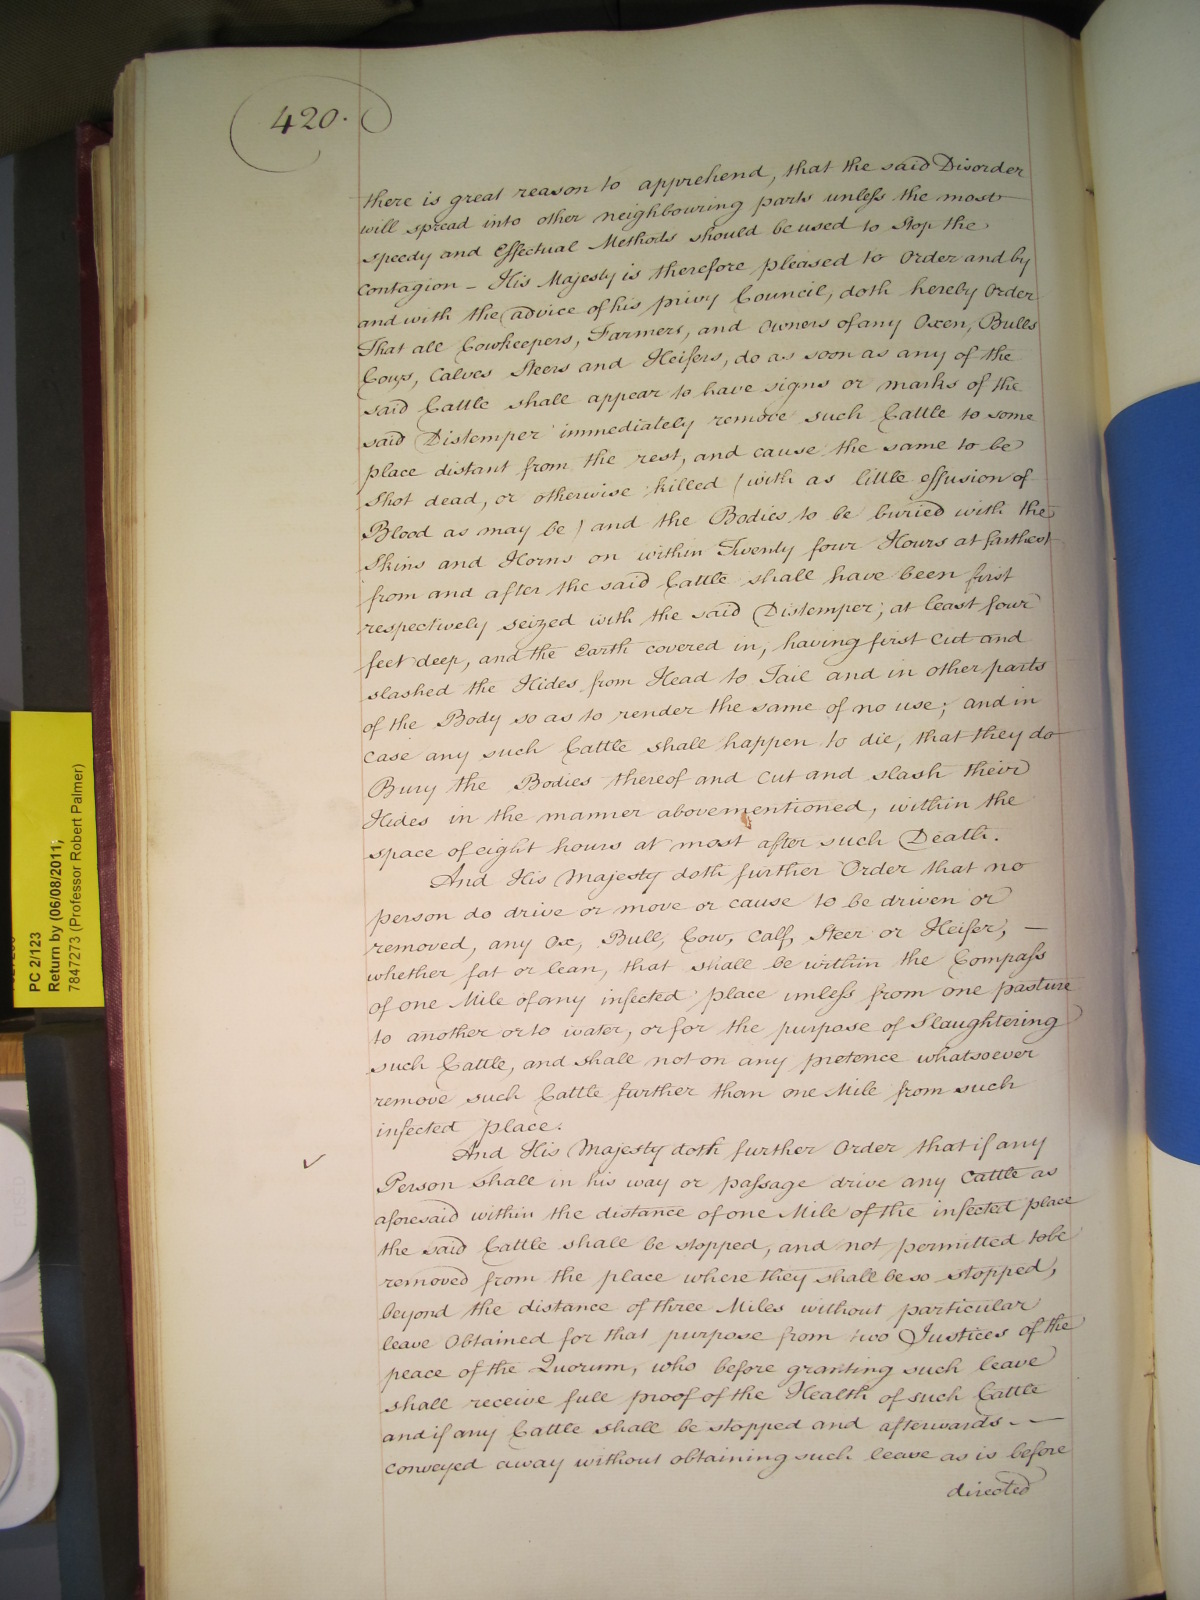 420.
there is great reason to apprehend, that the said Disorder
will spread into other neighbouring parts unless the most
speedy and Effectual Methods should be used to Stop the
Contagion - His Majesty is therefore pleased to Order and by
and with the advice of his privy Council, doth hereby Order
That all Cowkeepers, Farmers, and Owners of any Oxen, Bulls
Cows, Calves Steers and Heifers, do as soon as any of the
said Cattle shall appear to have signs or marks of the
said Distemper immediately remove such Cattle to some
place distant from the rest, and cause the same to be
Shot dead, or otherwise killed (with as little effusion of
Blood as may be) and the Bodies to be buried with the
Skins and Horns on within Twenty four Hours at farthest
from and after the said Cattle shall have been first
respectively seized with the said Distemper; at least four
feet deep, and the Earth covered in, having first Cut and
slashed the Hides from Head to Tail and in other parts
of the Body so as to render the same of no use; and in
Case any such Cattle shall happen to die, that they do
Bury the Bodies thereof and Cut and slash their
Hides in the manner abovementioned, within the
space of eight hours at most after such Death.
And His Majesty doth further Order that no
person do drive or move or cause to be driven or
removed, any Ox, Bull, Cow, Calf, Steer or Heifer, —
whether fat or lean, that shall be within the Compass
of one Mile of any infected place unless from one pasture
to another or to water, or for the purpose of Slaughtering
such Cattle, and shall not on any pretence whatsoever
remove such Cattle further than one Mile from such
infected place.
And His Majesty doth further Order that if any
Person shall in his way or passage drive any Cattle as
aforesaid within the distance of one Mile of the infected place
the said Cattle shall be stopped, and not permitted to be
removed from the place where they shall be so stopped,
beyond the distance of three Miles without particular
leave Obtained for that purpose from two Justices of the
peace of the Quorum, who before granting such leave
shall receive full proof of the Health of such Cattle
and if any Cattle shall be stopped and afterwards - —
Conveyed away without obtaining such leave as is before
directed
PC 2/123
Return by (06/08/2011;
7847273 (Professor Robert Palmer)